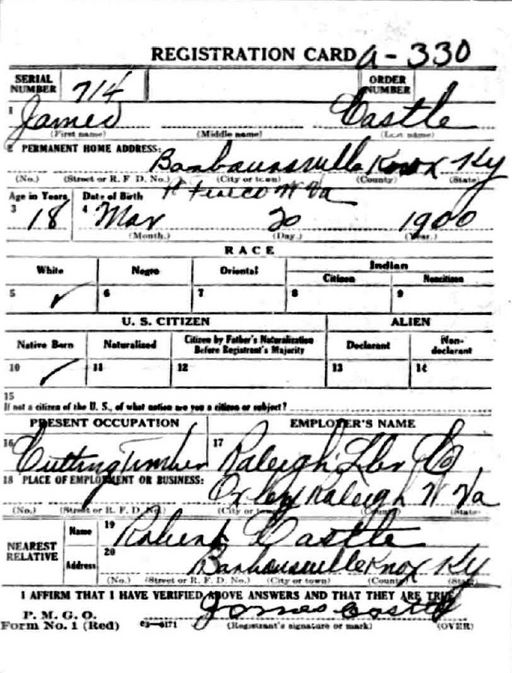 REGISTRATION CARD a-330
SERIAL NUMBER 714 ORDER NUMBER
1 James Castle
(First name) (Middle name) (Last name)
2 PERMANENT HOME ADDRESS: Barbaursville Knox Ky
(No.) (Street or R. F. D. No.) (City or town) (County) (State)
W Va
Age in Years Date of Birth
3 18 4 Mar 20 1900
(Month.) (Day.) (Year.)
RACE
White Negro Oriental Indian
Citizen Noncitizen
5 ✓ 6 7 8 9
U. S. CITIZEN ALIEN
Native Born Naturalized Citizen by Father's Naturalization Before Registrant's Majority Declarant Non-declarant
10 ✓ 11 12 13 14
15
If not a citizen of the U. S., of what nation are you a citizen or subject?
PRESENT OCCUPATION EMPLOYER'S NAME
16 Cutting Timber 17 Raleigh Lbr Co
18 PLACE OF EMPLOYMENT OR BUSINESS: Raleigh W Va
(No.) (Street or R. F. D. No.) (City or town) (County) (State)
NEAREST RELATIVE
Name 19 Robert Castle
Address 20 Barbaursville Knox Ky
(No.) (Street or R. F. D. No.) (City or town) (County) (State)
I AFFIRM THAT I HAVE VERIFIED ABOVE ANSWERS AND THAT THEY ARE TRUE
P. M. G. O.
Form No. 1 (Red) 03-6171 James Castle
(Registrant's signature or mark) (OVER)